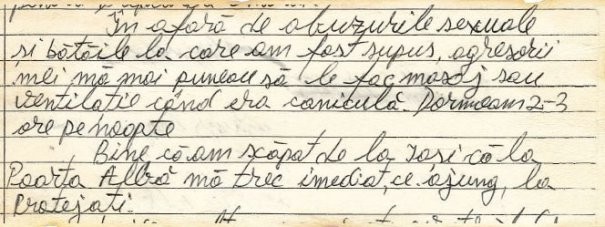 În afară de abuzurile sexuale
și bătăile la care am fost supus, agresorii
mei mă mai puneau să le fac masaj sau
ventilatie când era caniculă. Dormeam 2-3
ore pe noapte
Bine că am scăpat de la Iasi că la
Poarta Albă mă trec imediat, ce ajung, la
Protejati.